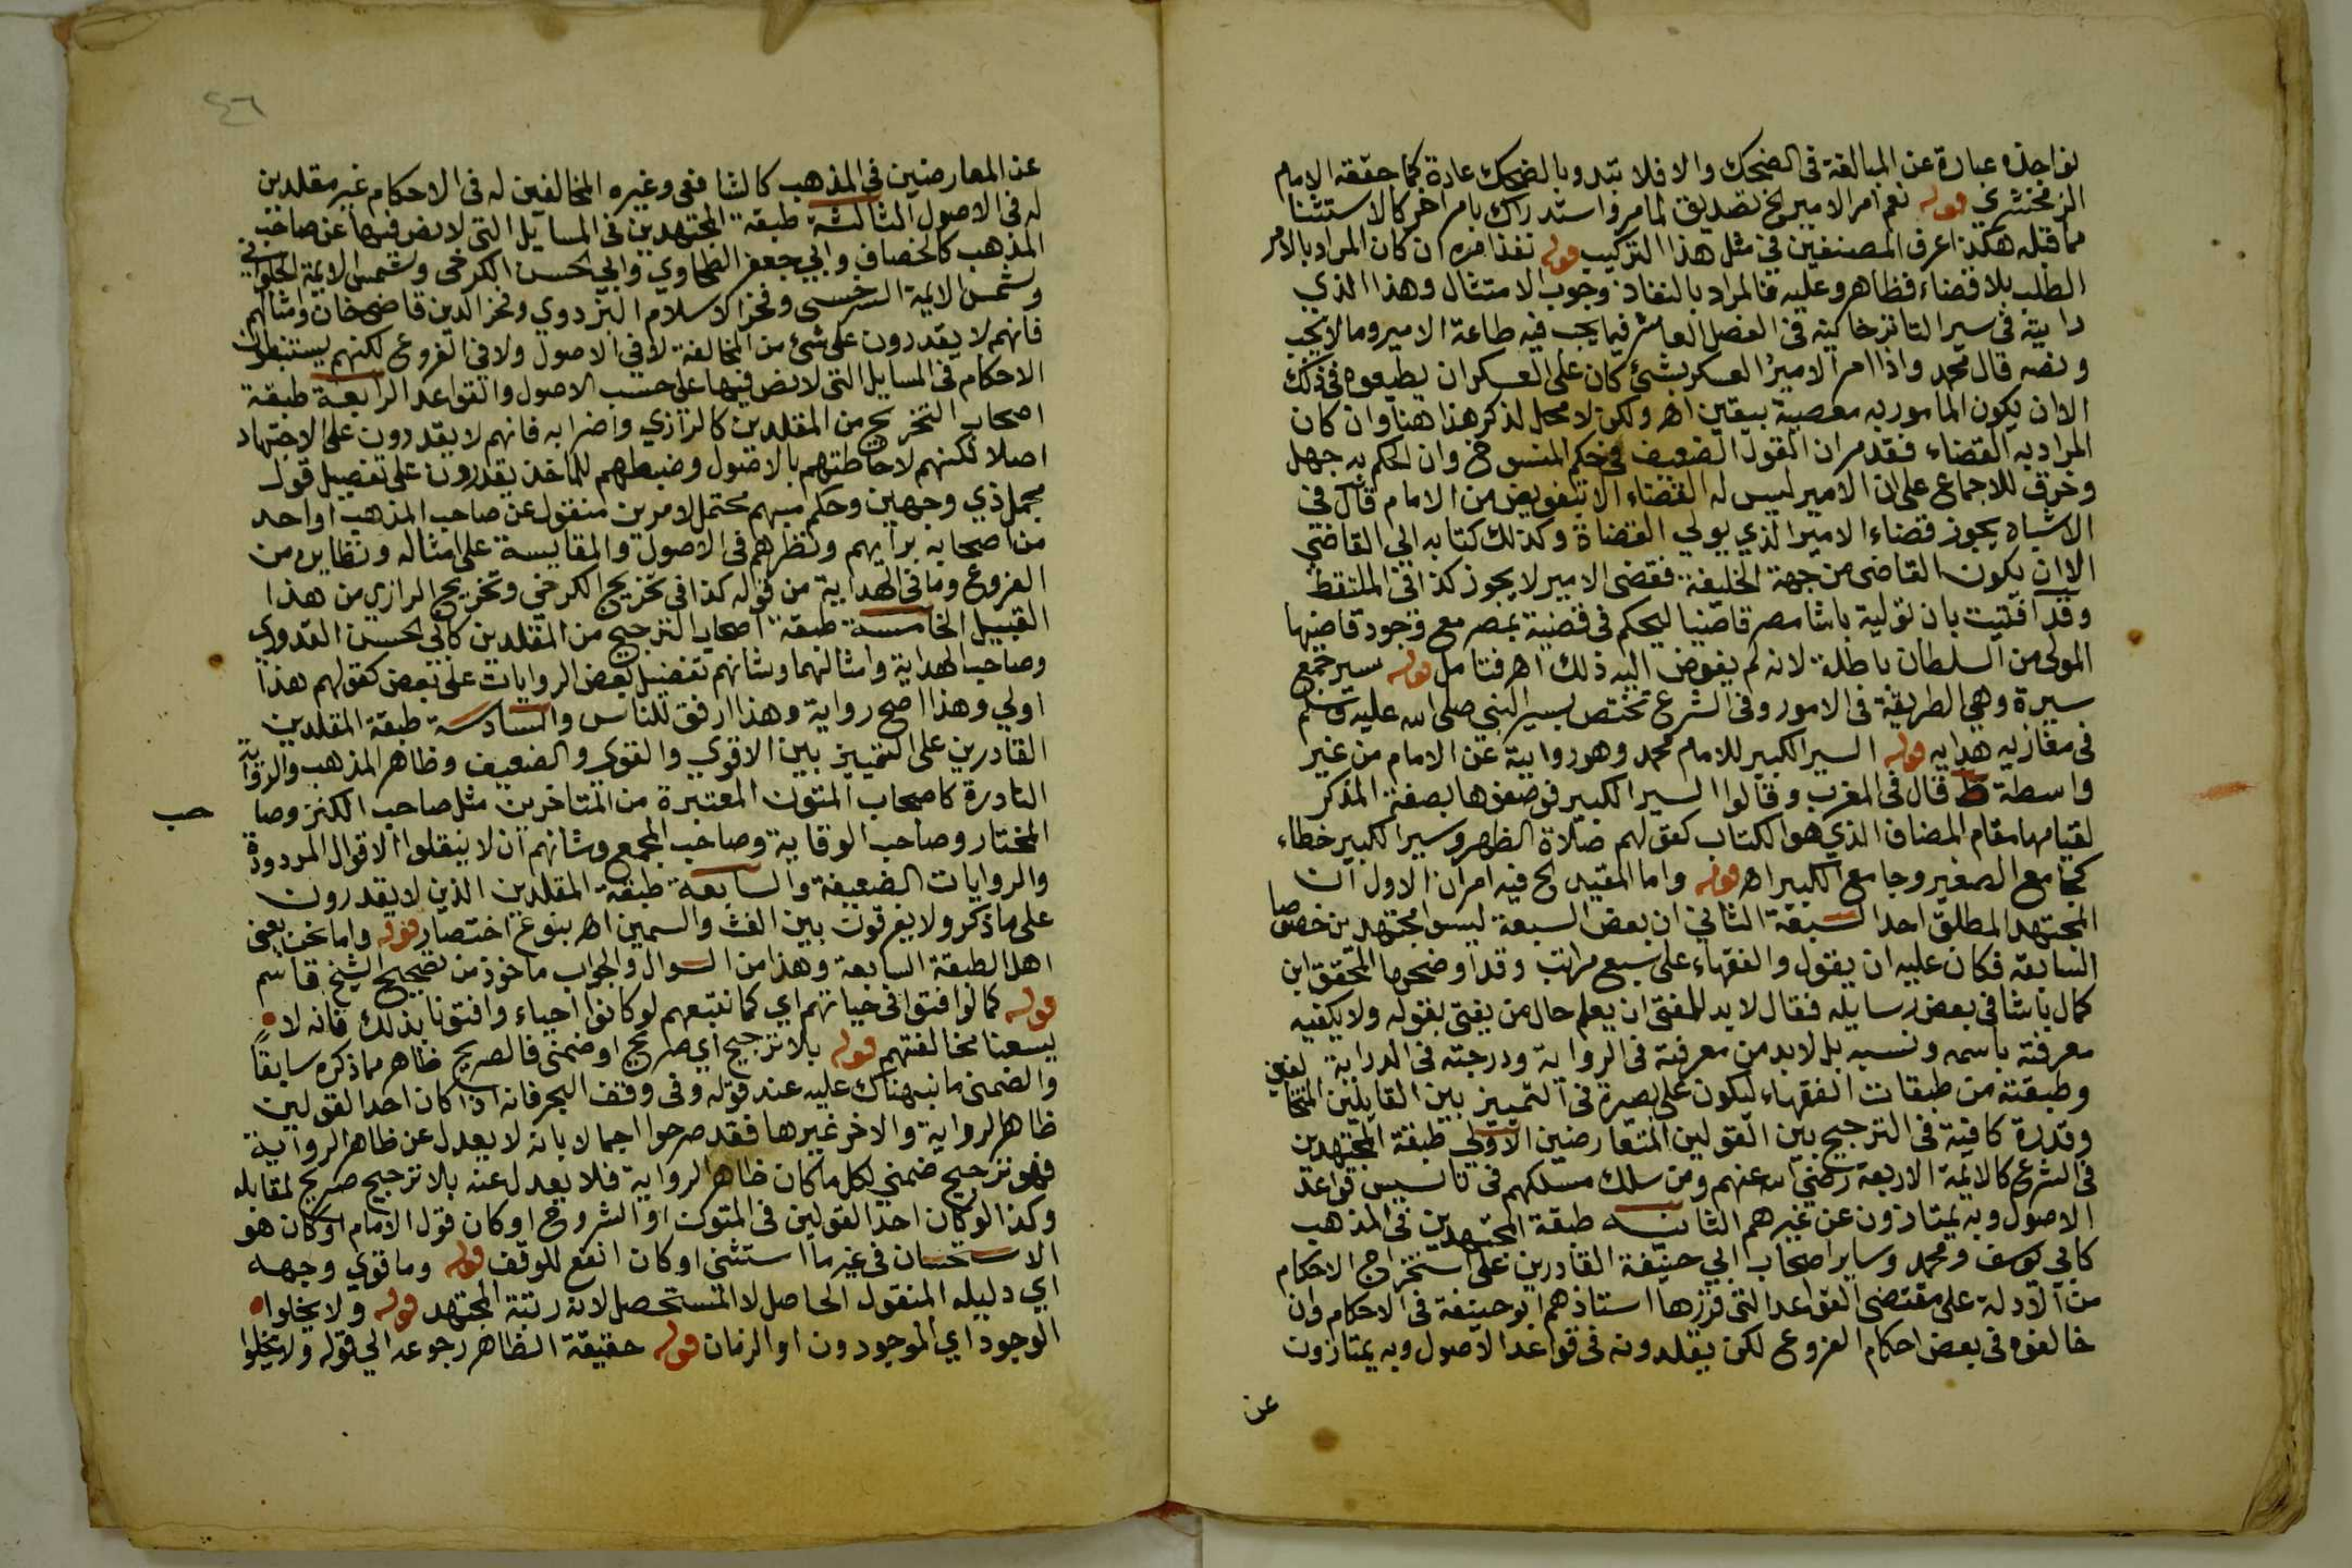 نواجذه عبارة عن المبالغة فى الضحك والا فلا تبدو بالضحك عادة كما حققه الامام
الزمخشري قوله نعم امر الامير الخ تصديق لما مر واستدراك بامر اخر كالاستثنا
مما قبله هكذا عرف المصنفين في مثل هذا التركيب قوله نفذ امره ان كان المراد بالامر
الطلب بلا قضاء فظاهر وعليه فالمراد بالنفاذ وجوب الامتثال وهذا الذي
رايته في سير التاترخانيه في الفصل العاشر فيما يجب فيه طاعة الامير وما لا يجب
ونصه قال محمد واذا امر الامير العسكر بشئ كان على العسكر ان يطيعوه في ذلك
الا ان يكون المامور به معصية بيقين اه ولكن لا محل لذكر هذا هنا وان كان
المراد به القضاء فقد مر ان القول الضعيف في حكم المنسوخ وان الحكم به جهل
وخرق للاجماع على ان الامير ليس له القضاء الا بتفويض من الامام قال في
الاشباه يجوز قضاء الامير الذي يولي القضاة وكذلك كتابه الي القاضي
الا ان يكون القاضي من جهة الخليفة فقضى الامير لا يجوز كذا في الملتقط
وقد افتيت بان تولية باشا مصر قاضيا ليحكم في قضية بمصر مع وجود قاضيها
المولى من السلطان باطلة لانه لم يفوض اليه ذلك اه فتامل قوله سير جمع
سيرة وهي الطريقة في الامور وفى الشرع تختص بسير النبي صلى الله عليه وسلم
فى مغازيه هدايه قوله السير الكبير للامام محمد وهو رواية عن الامام من غير
واسطة ط قال فى المغرب وقالوا السير الكبير فوصفوها بصفة المذكر
لقيامها مقام المضاف الذي هو الكتاب كقولهم صلاة الظهر وسير الكبير خطاء
كجامع الصغير وجامع الكبير اه قوله واما المقيد الخ فيه امران الاول ان
المجتهد المطلق احد السبعة الثاني ان بعض السبعة ليسوا مجتهدين خصوصا
السابعة فكان عليه ان يقول والفقهاء على سبع مراتب وقد اوضحها المحقق ابن
كمال باشا في بعض رسايله فقال لابد للمفتى ان يعلم حال من يفتى بقوله ولا يكفيه
معرفته باسمه ونسبه بل لابد من معرفته في الرواية ودرجته فى الدراية
وطبقته من طبقات الفقهاء ليكون على بصيرة في التمييز بين القايلين المتخالفين
وقدرة كافية فى الترجيح بين القولين المتعارضين الاولي طبقة المجتهدين
فى الشرع كالائمة الاربعة رضي الله عنهم ومن سلك مسلكهم فى تاسيس قواعد
الاصول وبه يمتازون عن غيرهم الثانية طبقة المجتهدين في المذهب
كابي يوسف ومحمد وساير اصحاب ابي حنيفة القادرين على استخراج الاحكام
من الادلة على مقتضى القواعد التى قررها استاذهم ابو حنيفة فى الاحكام وان
خالفوه في بعض احكام الفروع لكن يقلدونه فى قواعد الاصول وبه يمتازون
عن
٤٦
عن المعارضين في المذهب كالشافعى وغيره المخالفين له فى الاحكام غير مقلدين
له فى الاصول الثالثة طبقة المجتهدين فى المسايل التى لا نص فيها عن صاحب
المذهب كالخصاف وابي جعفر الطحاوي وابي الحسن الكرخى وشمس الايمة الحلواني
وشمس الايمة السرخسى وفخر الاسلام البزدوي وفخر الدين قاضي خان وامثالهم
فانهم لا يقدرون على شئ من المخالفة لا في الاصول ولا في الفروع لكنهم يستنبطون
الاحكام في المسايل التى لا نص فيها على حسب الاصول والقواعد الرابعة طبقة
اصحاب التخريج من المقلدين كالرازي واضرابه فانهم لا يقدرون على الاجتهاد
اصلا لكنهم لاحاطتهم بالاصول وضبطهم للماخذ يقدرون على تفصيل قول
مجمل ذي وجهين وحكم مبهم محتمل لامرين منقول عن صاحب المذهب او احد
من اصحابه برايهم ونظرهم فى الاصول والمقايسة على امثاله ونظايره من
الفروع وما في الهداية من قوله كذا فى تخريج الكرخي وتخريج الرازي من هذا
القبيل الخامسة طبقة اصحاب الترجيح من المقلدين كابي الحسين القدوري
وصاحب الهداية وامثالهما وشانهم تفضيل بعض الروايات على بعض كقولهم هذا
اولي وهذا اصح رواية وهذا ارفق للناس والسادسة طبقة المقلدين
القادرين على التمييز بين الاقوي والقوي والضعيف وظاهر المذهب والرواية
النادرة كاصحاب المتون المعتبرة من المتاخرين مثل صاحب الكنز وصا
حب
المختار وصاحب الوقاية وصاحب المجمع وشانهم ان لا ينقلوا الاقوال المردودة
والروايات الضعيفة والسابعة طبقة المقلدين الذين لا يقدرون
على ما ذكر ولا يفرقون بين الغث والسمين اه بنوع اختصار قوله واما نحن يعنى
اهل الطبقة السابعة وهذا من السوال والجواب ماخوذ من تصحيح الشيخ قاسم
قوله كما لو افتوا فى حياتهم اي كما نتبعهم لو كانوا احياء وافتونا بذلك فانه لا
يسعنا مخالفتهم قوله بلا ترجيح اي صريح او ضمنى فالصريح ظاهر مما ذكره سابقا
والضمنى ما نبهناك عليه عند قوله وفى وقف البحر فانه اذا كان احد القولين
ظاهر الرواية والاخر غيرها فقد صرحوا اجمالا بانه لا يعدل عن ظاهر الرواية
فهو ترجيح ضمني لكل ما كان ظاهر الرواية فلا يعدل عنه بلا ترجيح صريح لمقابله
وكذا لو كان احد القولين فى المتون او الشروح او كان قول الامام او كان هو
الاستحسان فى غير ما استثنى او كان انفع للوقف قوله وما قوي وجهه
اي دليله المنقول الحاصل لا المستحصل لانه رتبة المجتهد قوله ولا يخلوا
الوجود اي الموجودون او الزمان قوله حقيقة الظاهر رجوعه الي قوله ولا يخلوا